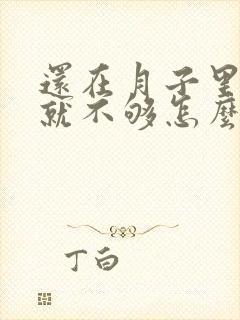 還在月子里
就不够怎麼
丁白